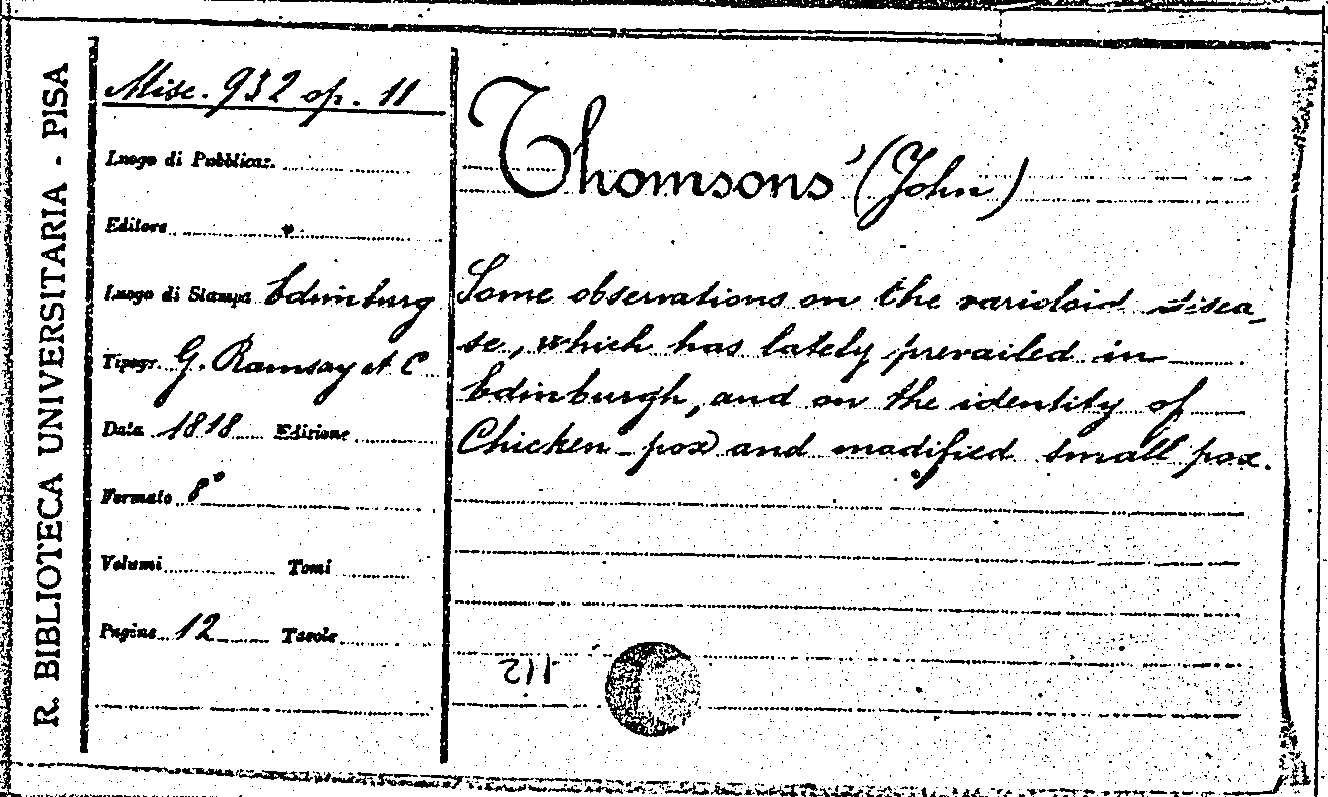 R. BIBLIOTECA UNIVERSITARIA - PISA
Misc. 932 op. 11
Luogo di Pubblicaz.
Editore "
Luogo di Stampa Edinburg
Tipogr. G. Ramsay et C
Data 1818 Edizione
Formato 8°
Volumi Tomi
Pagine 12 Tavole
Thomsons' (John)
Some observations on the varioloid disea-
se, which has lately prevailed in
Edinburgh, and on the identity of
Chicken-pox and modified small pox.